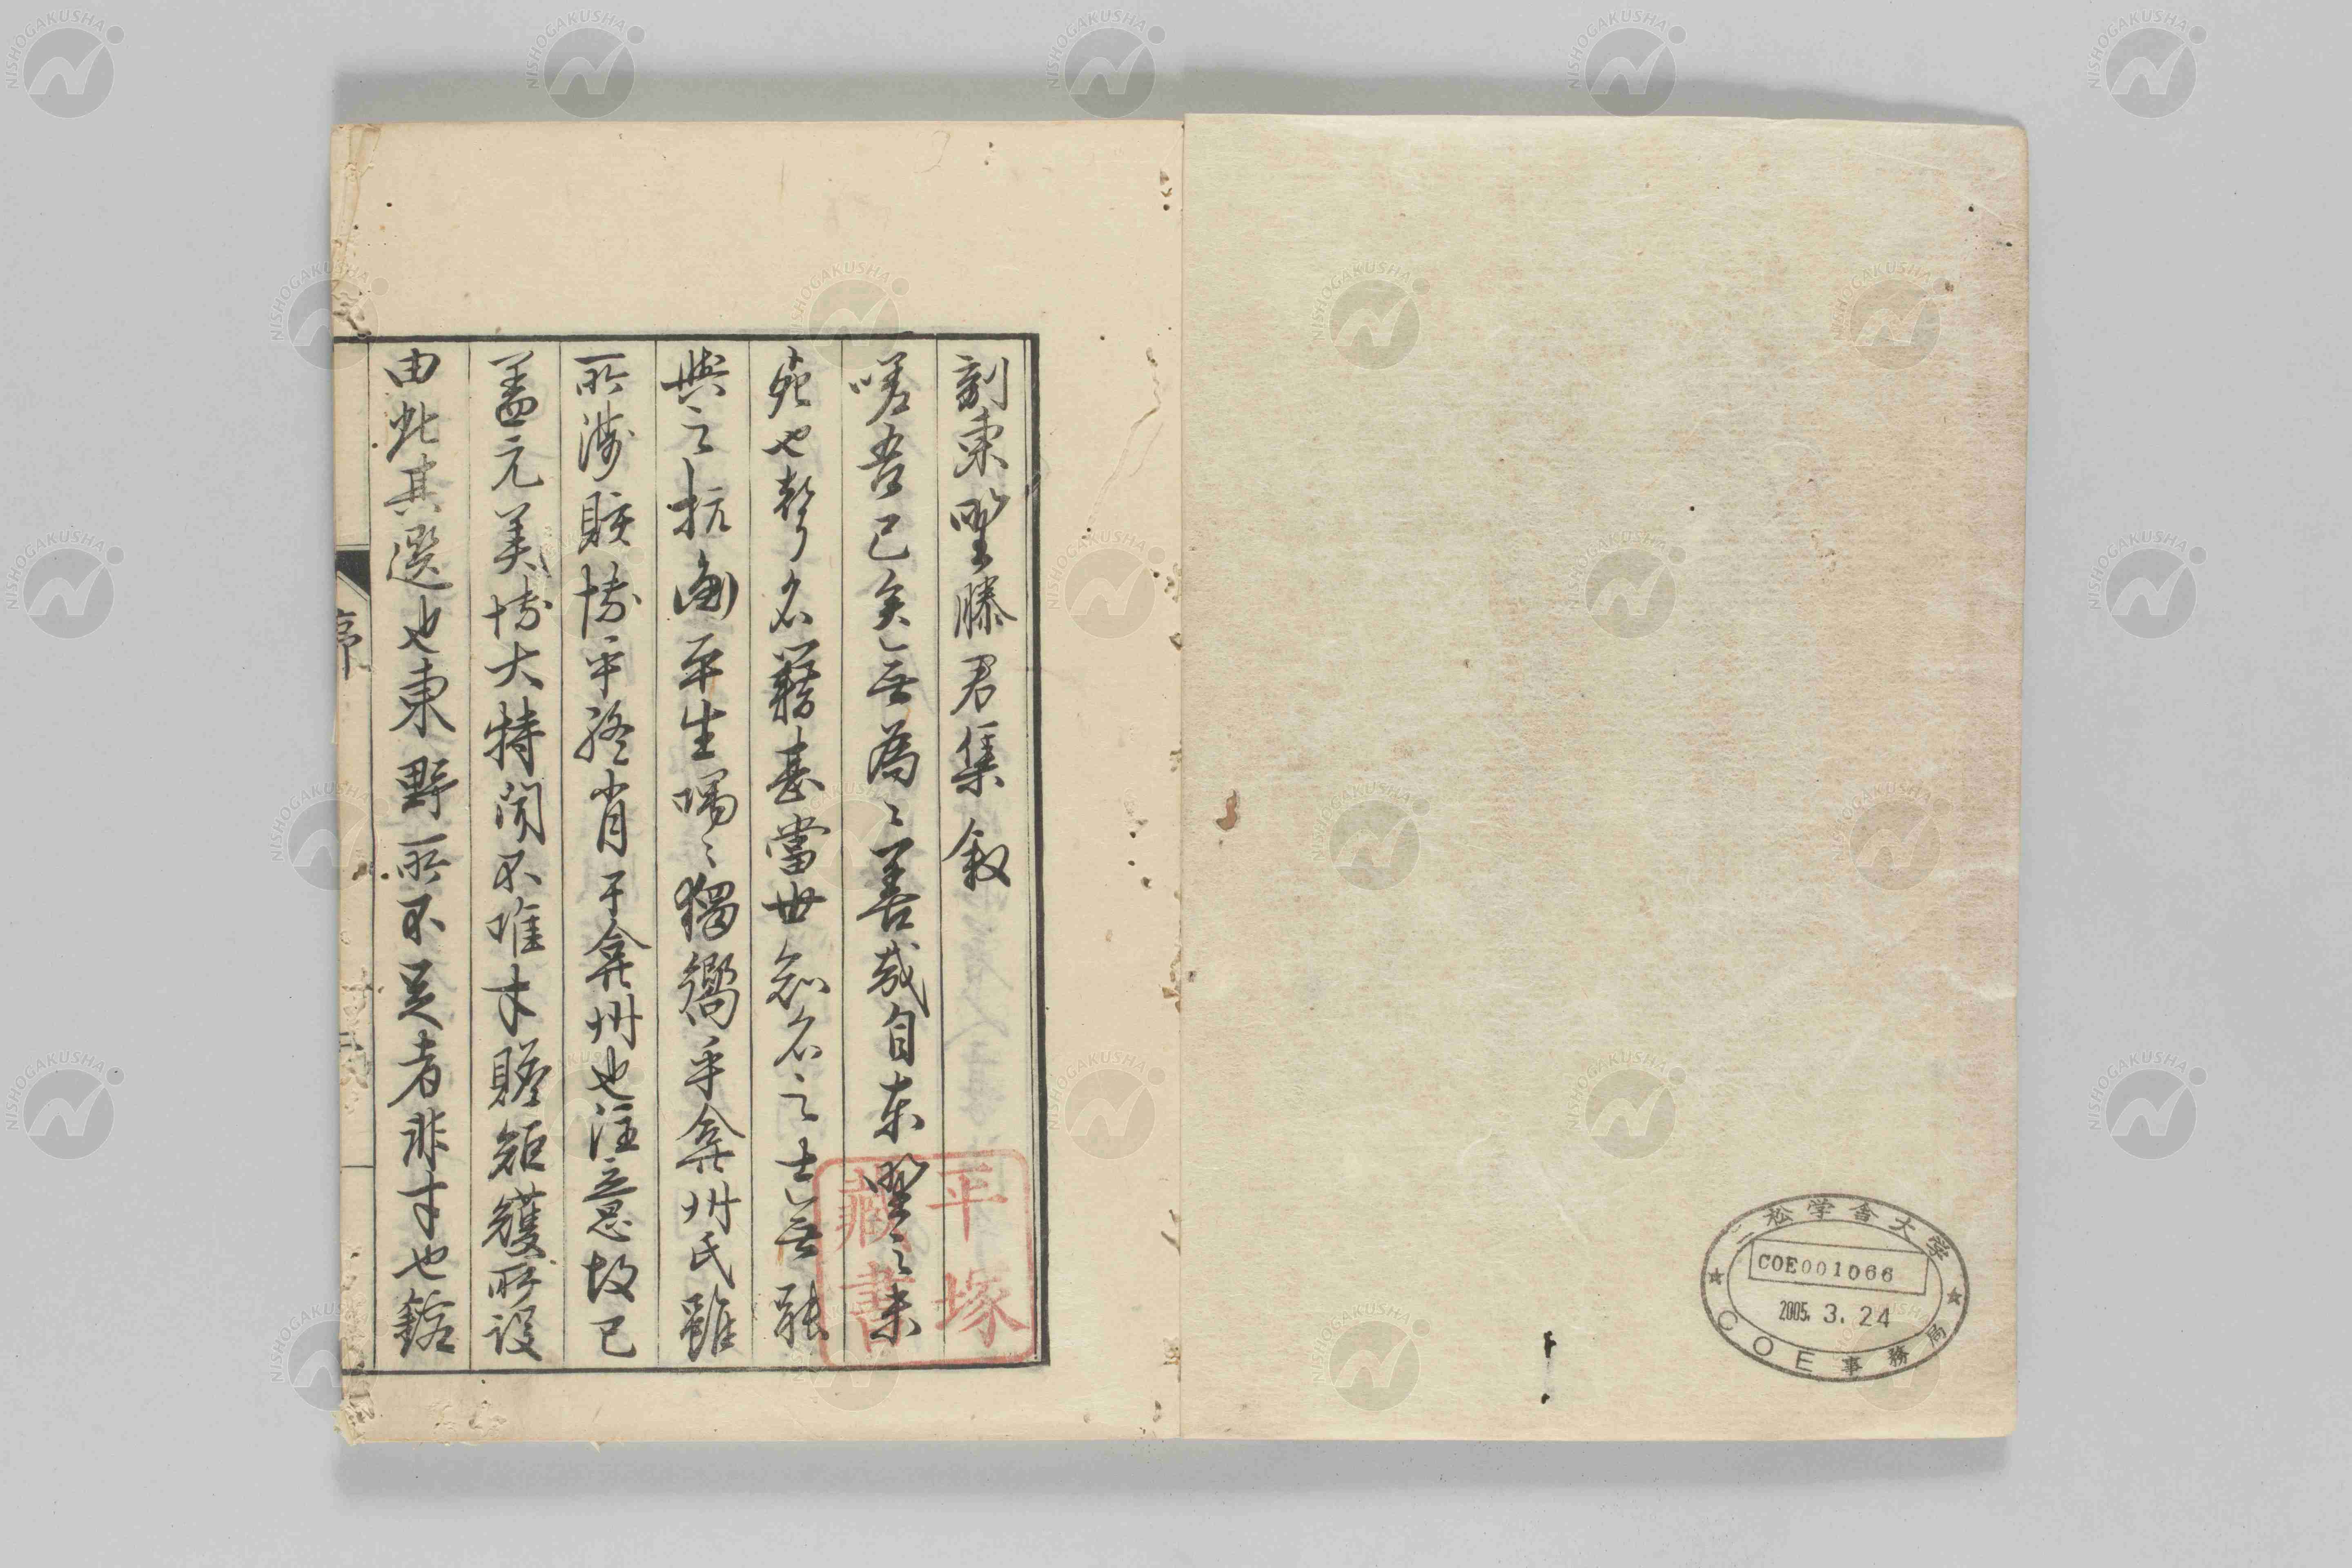 二松学舎大学
COE001066
2005. 3. 24
COE事務局
刻東壄滕君集敘
嗟吾已矣無為〻善哉自東壄之未
死也聲名籍甚當世知名之士無能
與之抗衡平生喁〻獨嚮乎弇州氏雖
所涉賅博乎終肖于弇州也注意故已
蓋元美博大特聞不唯才贍矩矱所設
由此其選也東野所不足者非才也鎔
序
平塚
藏書
NISHOGAKUSHA